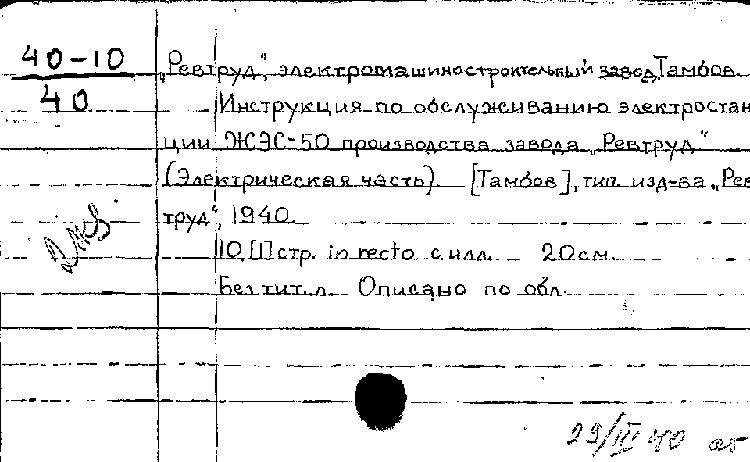 40-10
40
„Ревтруд", электромашиностроительный завод, Тамбов.
Инструкция по обслуживанию электростан
ции ЖЭС-50 производства завода „Ревтруд"
(Электрическая часть). [Тамбов], тип. изд-ва „Рев
труд", 1940.
10,[1] стр. in recto с илл. 20 см.
Без тит. л. Описано по обл.
29/III 40